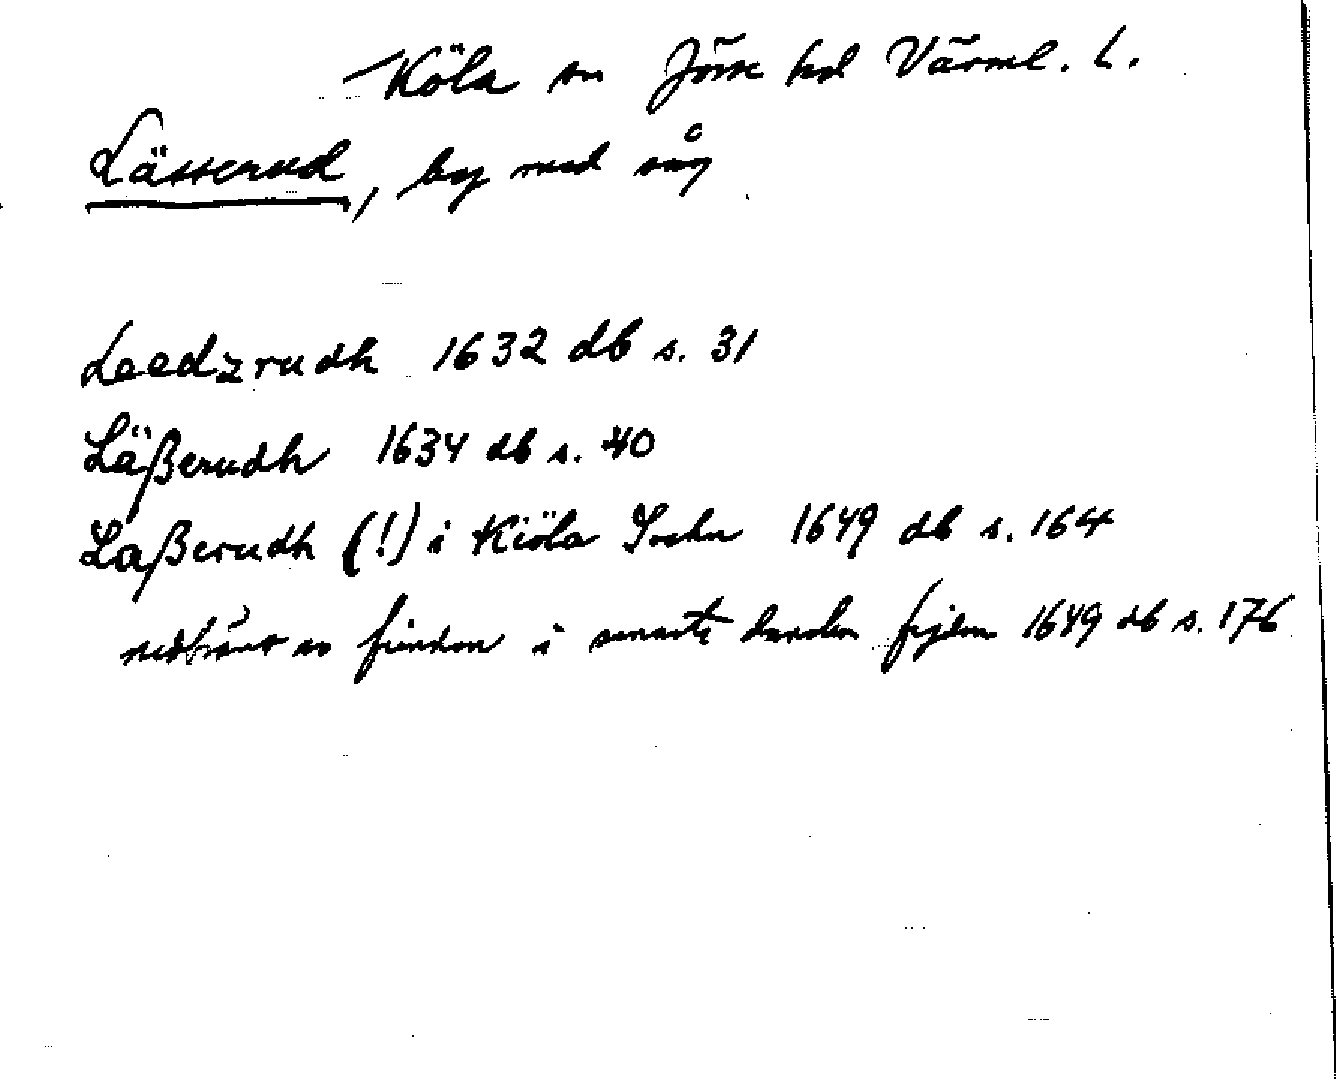 Köla sn Jösse hd Värml. L.
Lässerud, by med såg
Leedzrudh 1632 db s. 31
Läßerudh 1634 db s. 40
Laßerudh (!) i Kiöla Sochn 1649 db s. 164
nedbränt av fienden i senaste danska fejden 1649 db s. 176